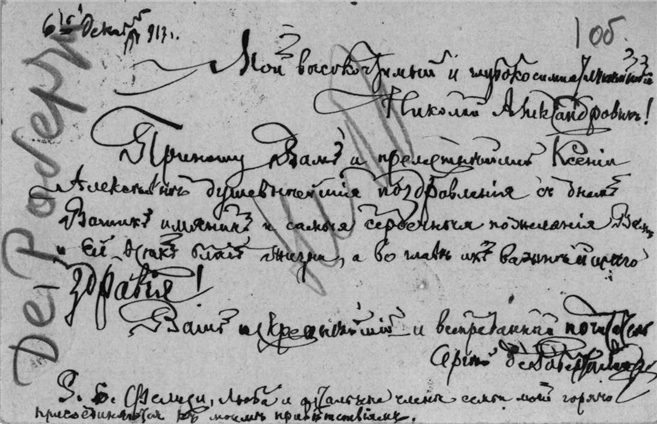 6го Декабря
1917 г.
1 об.
Де-Роберти
Мой высокочтимый и глубокосимпатичнейший
Николай Александрович!
Приношу Вамъ и прелестнейшей Ксении
Алексеевне душевнейшия поздравления съ днемъ
Вашихъ имянинъ и самыя сердечныя пожелания Вамъ
и Ей всехъ благъ жизни, а во главе ихъ важнейшаго
здравия!
Вамъ искреннейший и всепреданный почитатель
Сергей Де-Роберти
P. S. Люба и остальные члены семьи моей горячо
присоединяются къ моимъ приветствиямъ.